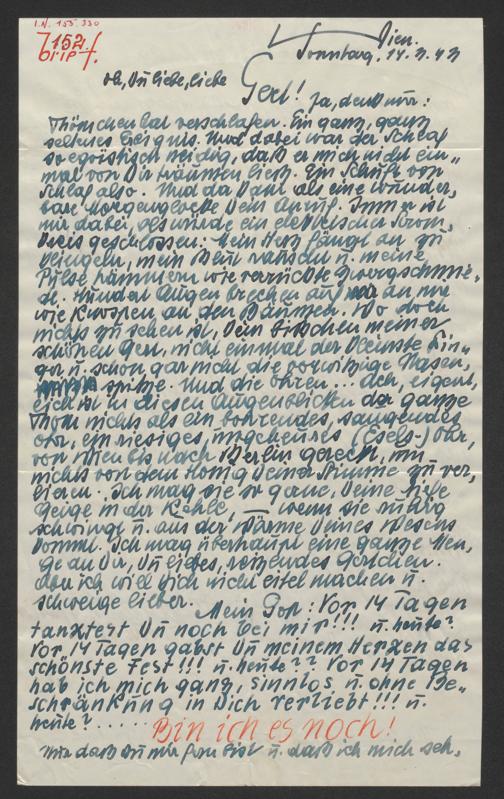 I.N. 155.330
152.
Brief.
Wien.
Sonntag, 14.3.43
oh, Du liebe, liebe
Gerl! Ja, denk nur:
Thömchen hat verschlafen. Ein ganz, ganz
seltenes Ereignis. Und dabei war der Schlaf
so egoistisch neidig, daß er mich nicht ein-
mal von Dir träumen ließ. Ein Schuft von
Schlaf also. Und da kam als eine wunder-
bare Morgenglocke Dein Anruf. Immer ist
mir dabei, als würde ein elektrischer Strom-
kreis geschlossen: mein Herz fängt an zu
klingeln, mein Blut rauscht u. meine
Pulse hämmern wie verrückte Zwergschmie-
de. Hundert Augen brechen auf an mir
wie Knospen an den Bäumen. Wo doch
nichts zu sehen ist, kein bißchen meiner
schönen Gerl, nicht einmal der kleinste Fin-
ger u. schon gar nicht die vorwitzige Nasen-
spitze. Und die Ohren... Ach, eigent-
lich ist in diesen Augenblicken der ganze
Thom nichts als ein bohrendes, saugendes
Ohr, ein riesiges, ungeheures (Esels-) Ohr,
von Wien bis nach Berlin gereckt, um
nichts von dem Honig Deiner Stimme zu ver-
lieren. Ich mag sie so gerne, Deine tiefe
Geige in der Kehle, — wenn sie ruhig
schwingt u. aus der Wärme Deines Wesens
kommt. Ich mag überhaupt eine ganze Men-
ge an Dir, Du liebes, reizendes Gerlchen.
Aber ich will Dich nicht eitel machen u.
schweige lieber.
Mein Gott: Vor 14 Tagen
tanztest Du noch bei mir!!! u. heute?
Vor 14 Tagen gabst Du meinem Herzen das
schönste Fest!!! u. heute?? Vor 14 Tagen
hab ich mich ganz, sinnlos u. ohne Be-
schränkung in Dich verliebt!!! u.
heute? ..... Bin ich es noch!
Nur daß Du mir fern bist u. daß ich mich seh-